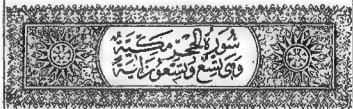 سُورَةُ الحِجْرِ مَكِيَّةٌ
وَهِيَ تِسْعٌ وَتِسْعُونَ اٰيَةً